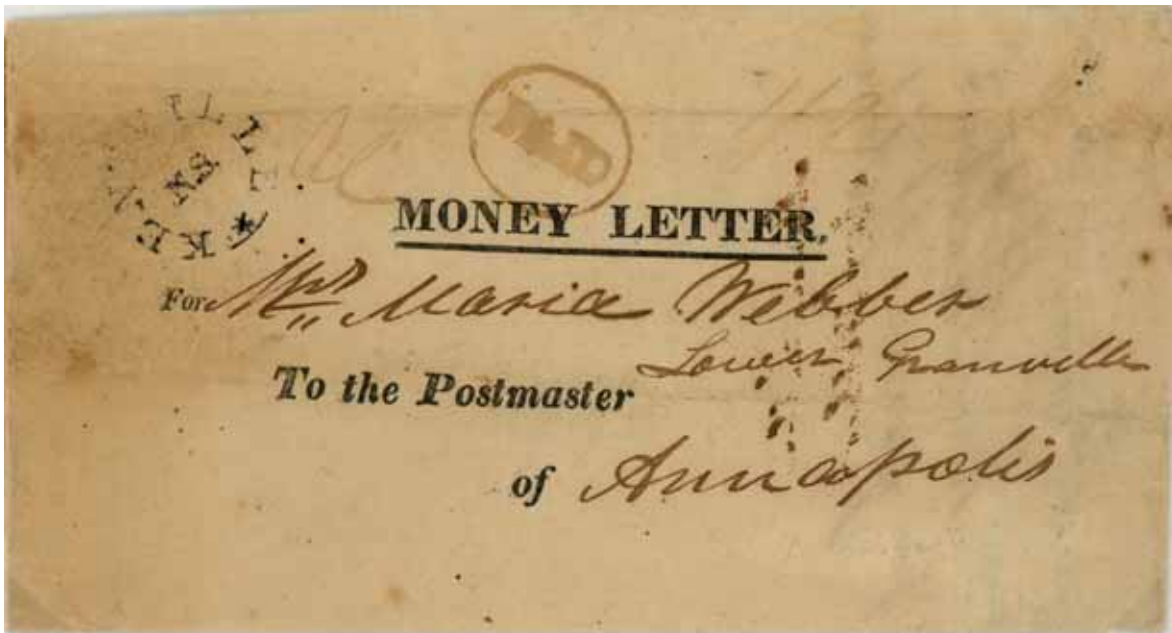 KENTVILLE
NS
PAID
MONEY LETTER.
For Mrs Maria Webber
Lower Granville
To the Postmaster
of Annapolis